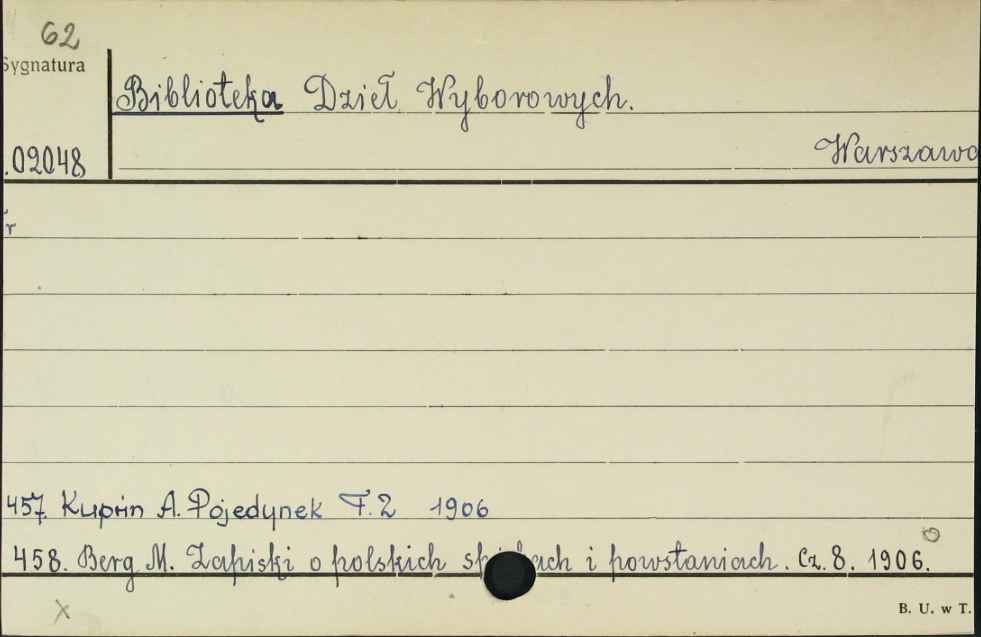 62
Sygnatura
Biblioteka Dzieł Wyborowych.
.02048
Warszawa
457. Kuprin A. Pojedynek T. 2 1906
458. Berg M. Zapiski o polskich i powstaniach. Cz. 8. 1906.
x
B. U. w T.